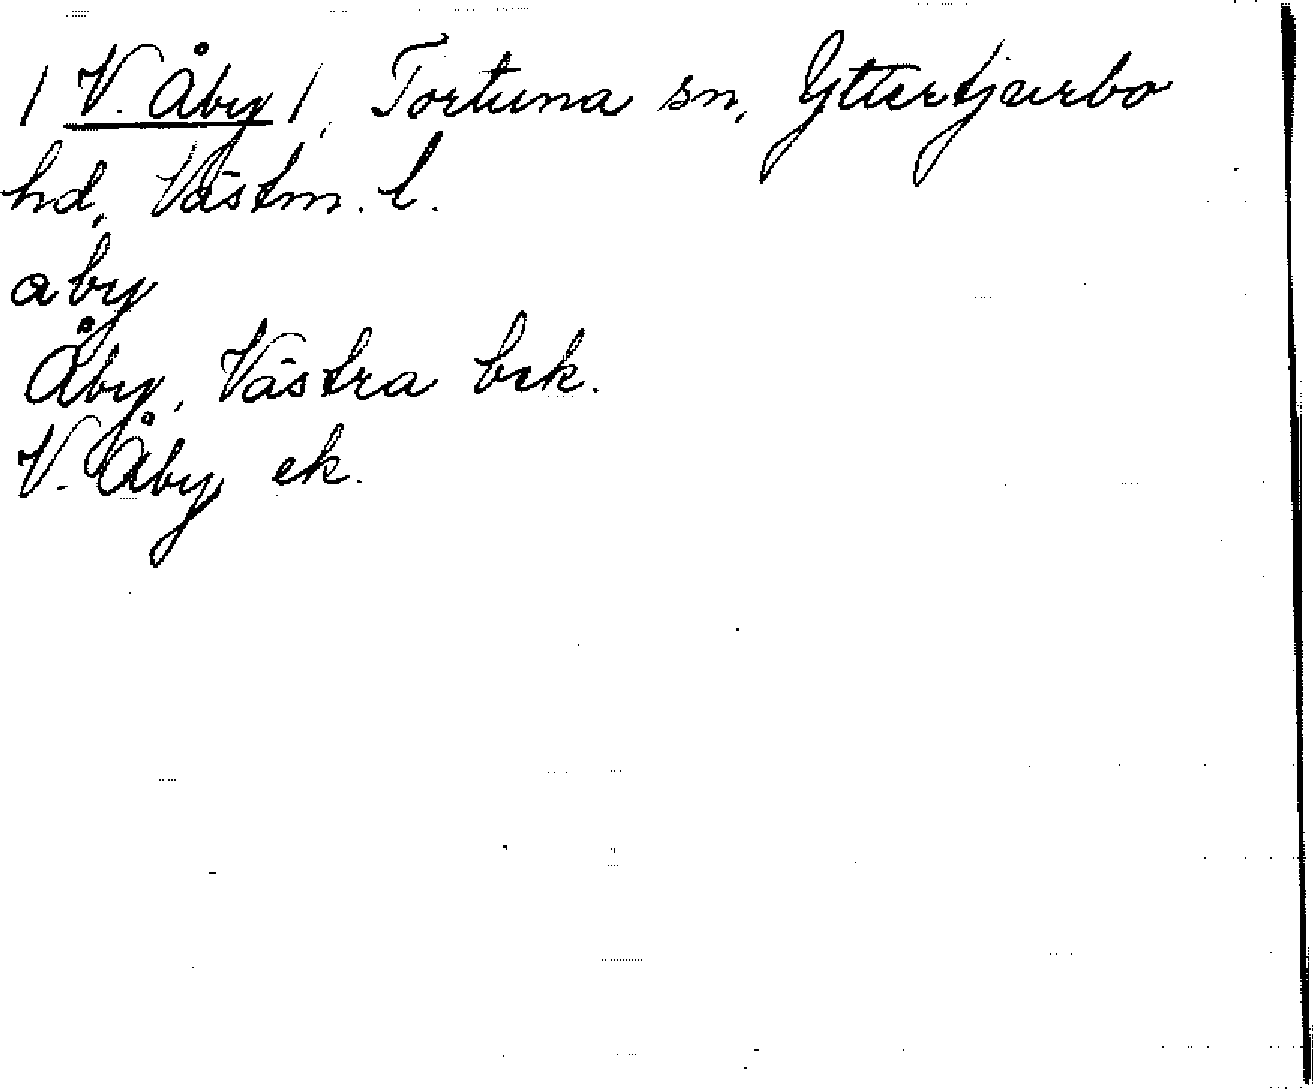 / V. Åby /, Tortuna sn, Yttertjurbo
hd, Västm. l.
aby
Åby, Västra bek.
V. Åby ek.